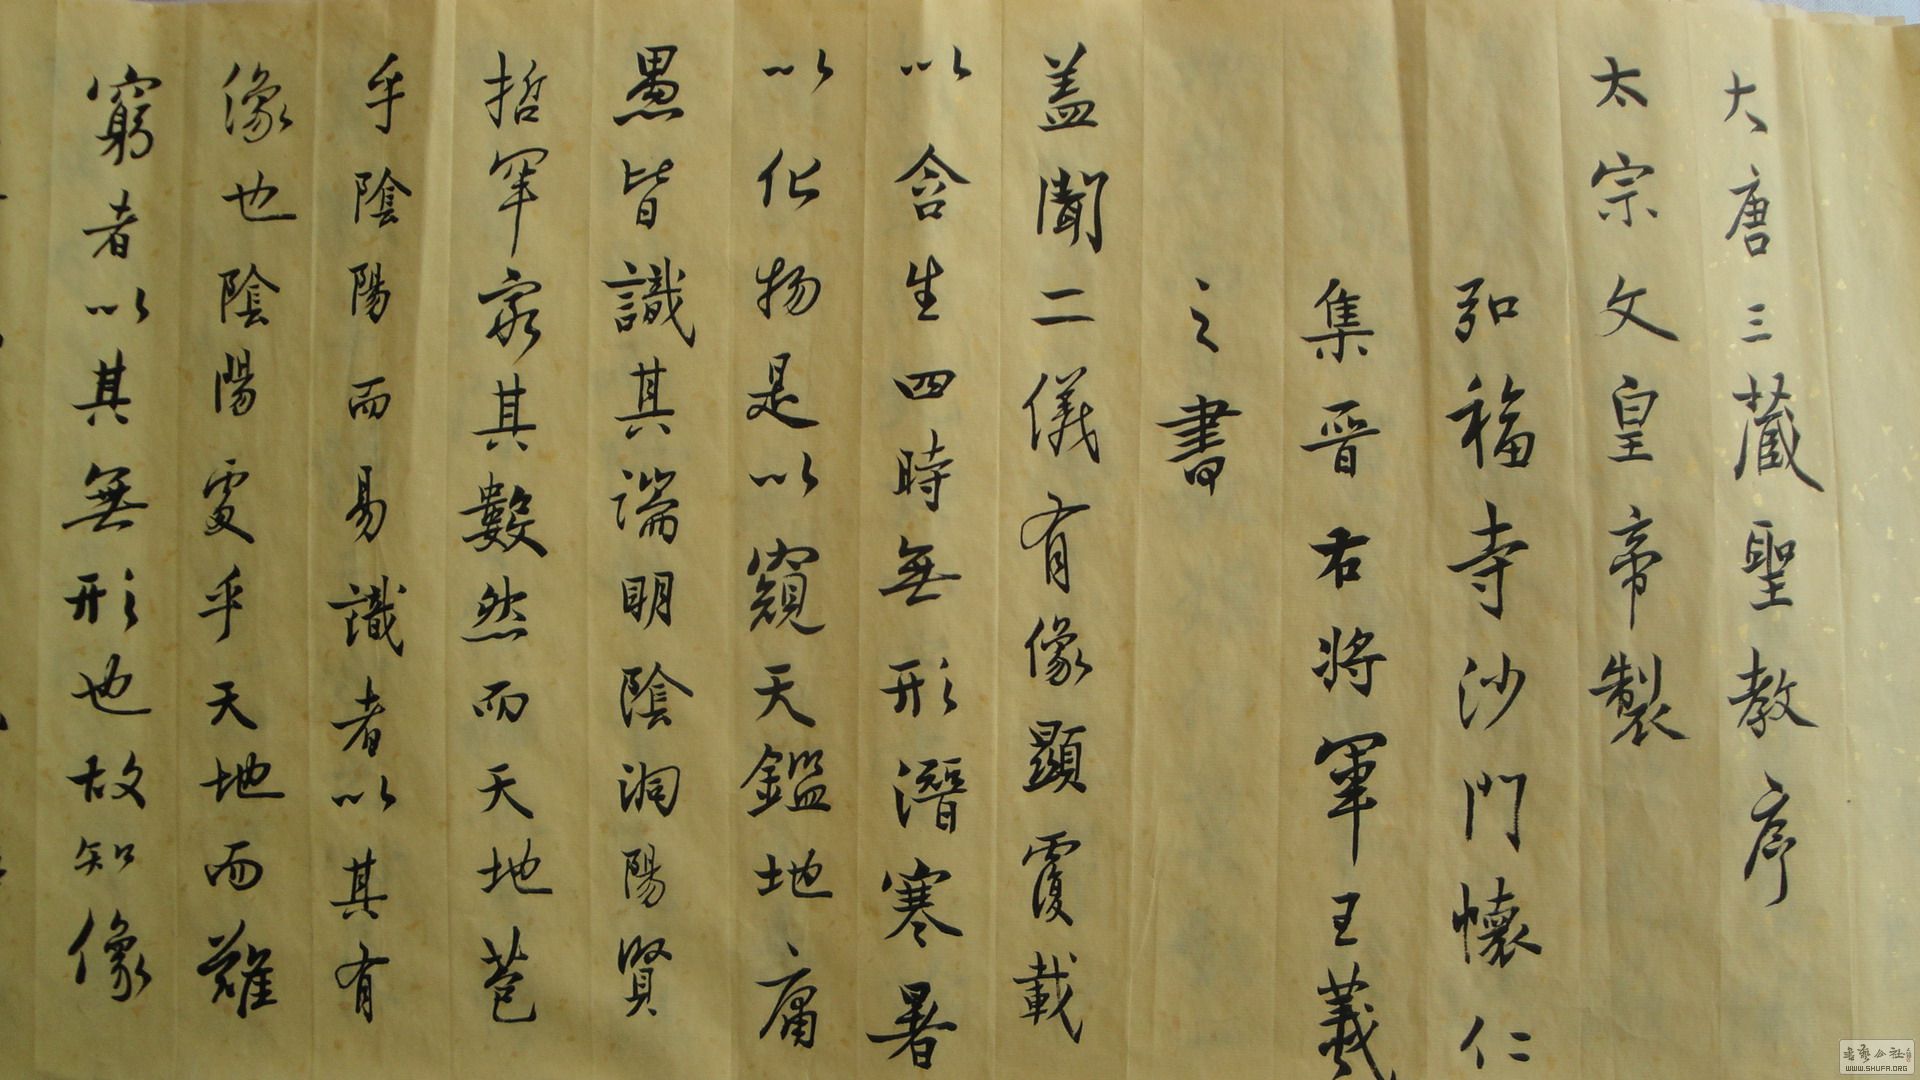 大唐三藏聖教序
太宗文皇帝製
弘福寺沙門懷仁
集晉右將軍王羲
之書
盖聞二儀有像顯覆載
以含生四時無形潛寒暑
以化物是以窺天鑑地庸
愚皆識其端明陰洞陽賢
哲罕窮其數然而天地苞
乎陰陽而易識者以其有
像也陰陽處乎天地而難
窮者以其無形也故知像
書藝公社
WWW.SHUFA.ORG